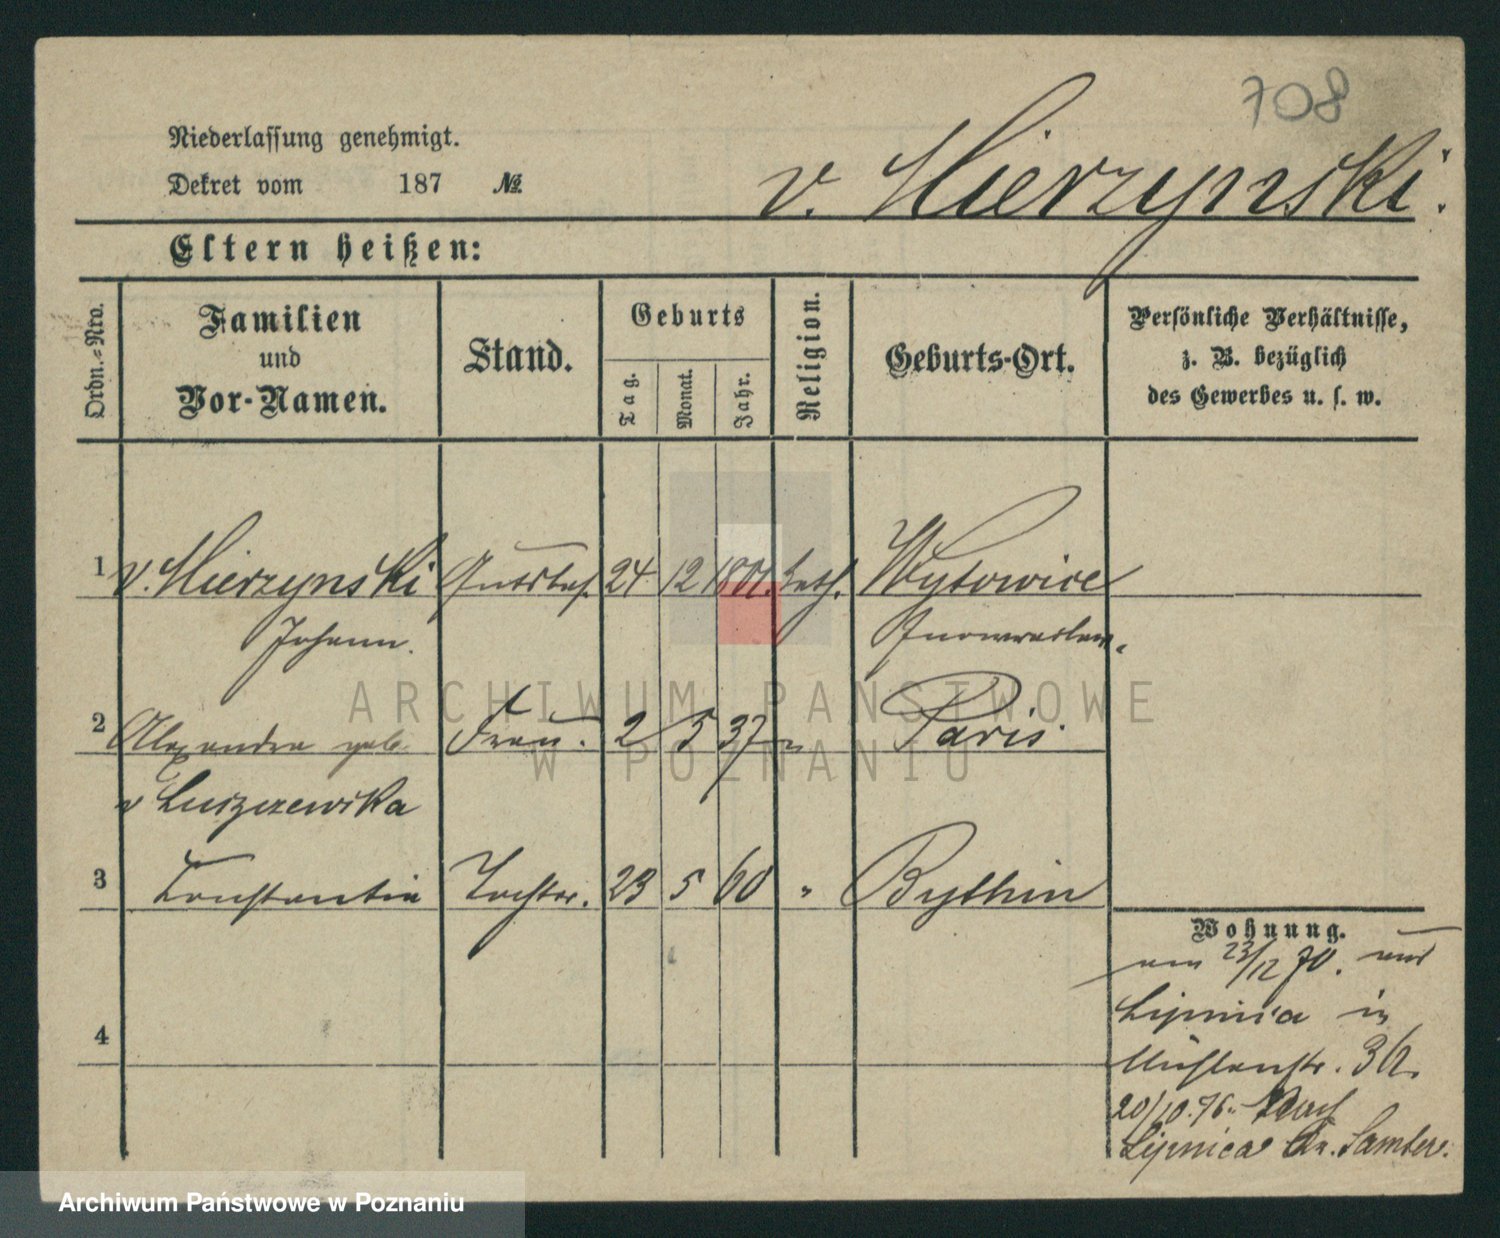 708
Niederlassung genehmigt.
Dekret vom 187 №
v. Mierzynski.
Eltern heißen:
Ordn.-Nro.
Familien und Vor-Namen.
Stand.
Geburts
Tag.
Monat.
Jahr.
Religion.
Geburts-Ort.
Persönliche Verhältnisse,
z. B. bezüglich
des Gewerbes u. s. w.
1 v. Mierzynski Gutsbes. 24 12 1801. kath. Wytowice
Johann. Inowraclaw.
2 Alexandra geb. Frau. 2 5 37 " Paris.
v Luszczewska
3 Constantia Tochter. 23 5 60 " Bythin
4
Wohnung.
am 23/12 70. aus
Lipnica in
Mühlenstr. 36.
20/10.76. Nach
Lipnica Kr. Samter.
ARCHIWUM PAŃSTWOWE
W POZNANIU
Archiwum Państwowe w Poznaniu